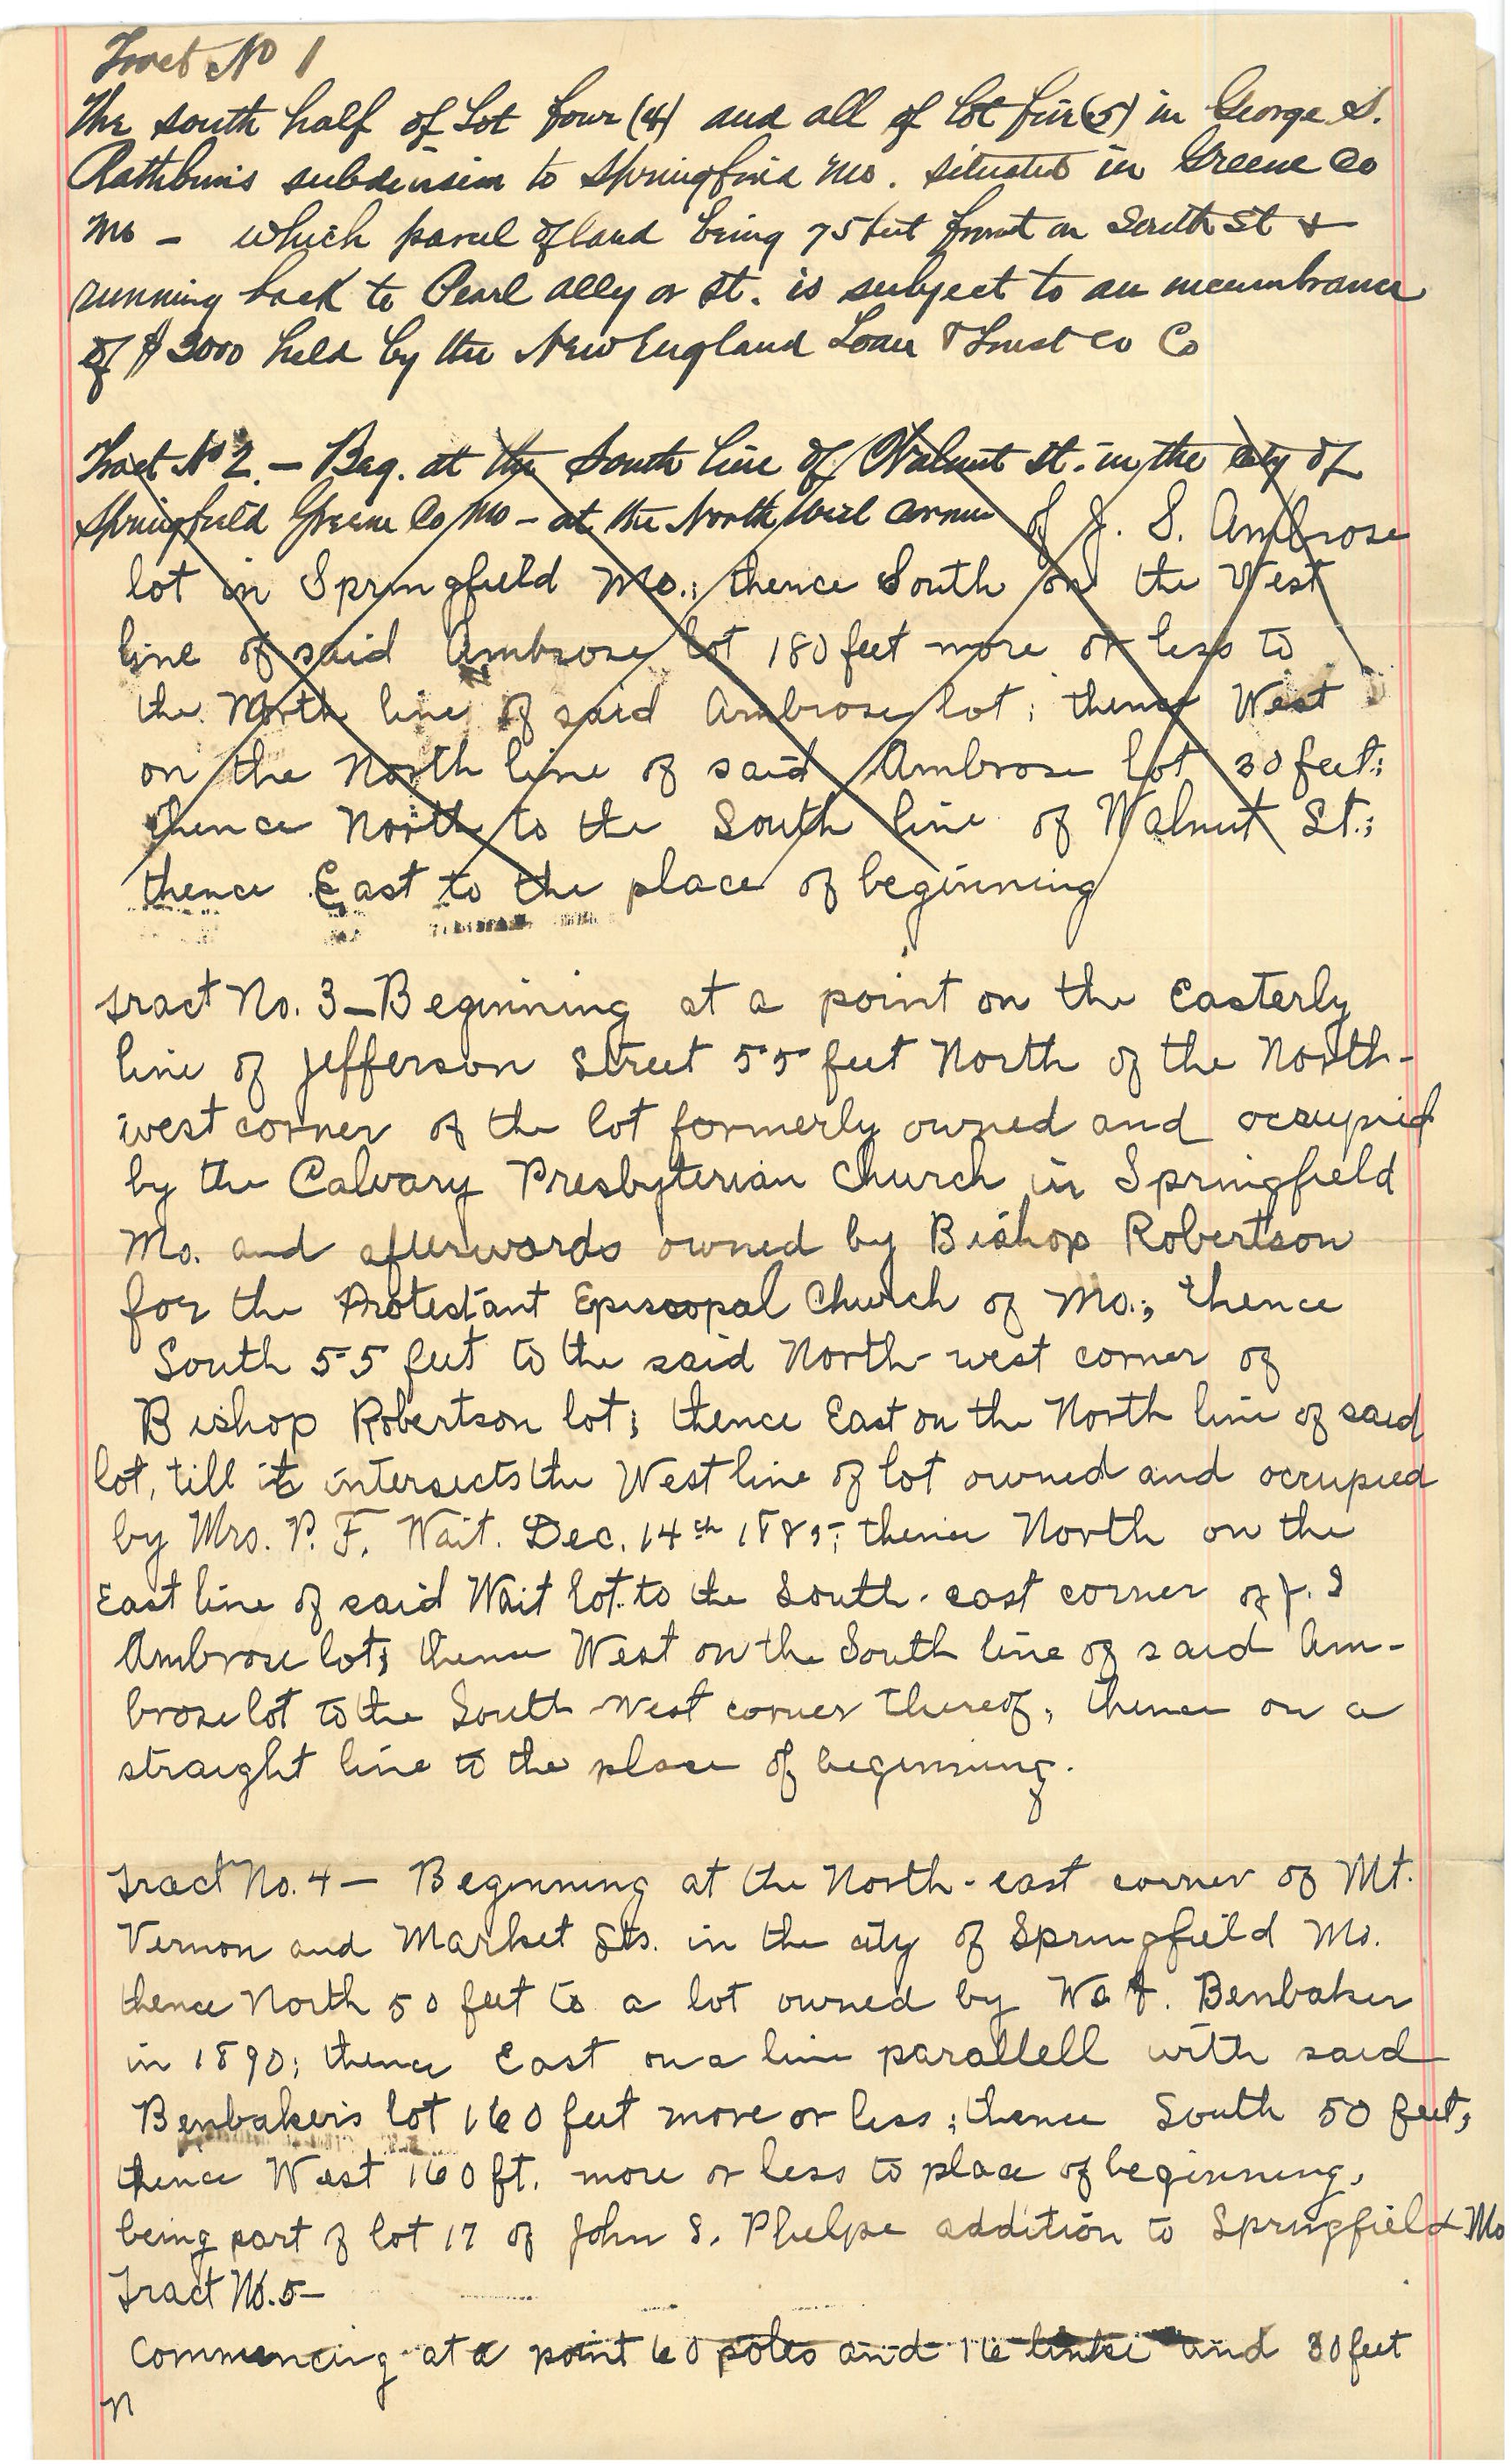 Tract No 1
The south half of Lot four (4) and all of lot five (5) in George S.
Rathbun's subdivision to Springfield Mo. situated in Greene Co
Mo - which parcel of land being 75 feet front on South St &
running back to Pearl ally or st. is subject to an incumbrance
of $3000 held by the New England Loan & Trust Co Co
Tract No 2. - Beg. at the South line of Walnut st. in the city of
Springfield Greene Co Mo - at the North West corner of J. S. Ambrose
lot in Springfield Mo.; thence South on the West
line of said Ambrose lot 180 feet more or less to
the North line of said Ambrose lot; thence West
on the North line of said Ambrose lot 30 feet;
thence North to the South line of Walnut St.;
thence East to the place of beginning
Tract No. 3 - Beginning at a point on the Easterly
line of Jefferson Street 55 feet North of the North-
west corner of the lot formerly owned and occupied
by the Calvary Presbyterian Church in Springfield
Mo. and afterwards owned by Bishop Robertson
for the Protestant Episcopal Church of Mo.; thence
South 55 feet to the said North-west corner of
Bishop Robertson lot; thence East on the North line of said
lot, till it intersects the West line of lot owned and occupied
by Mrs. P. F. Wait. Dec. 14th 1885; thence North on the
East line of said Wait lot to the South-east corner of J. S
Ambrose lot; thence West on the South line of said Am-
brose lot to the South-West corner thereof, thence on a
straight line to the place of beginning.
Tract No. 4 - Beginning at the North-east corner of Mt.
Vernon and Market Sts. in the city of Springfield Mo.
thence North 50 feet to a lot owned by Benbaker
in 1890; thence East on a line parallell with said
Benbaker's lot 160 feet more or less; thence South 50 feet,
thence West 160 ft. more or less to place of beginning,
being part of lot 17 of John S. Phelps addition to Springfield Mo
Tract No. 5-
Commencing at a point 60 poles and 16 links and 30 feet
N